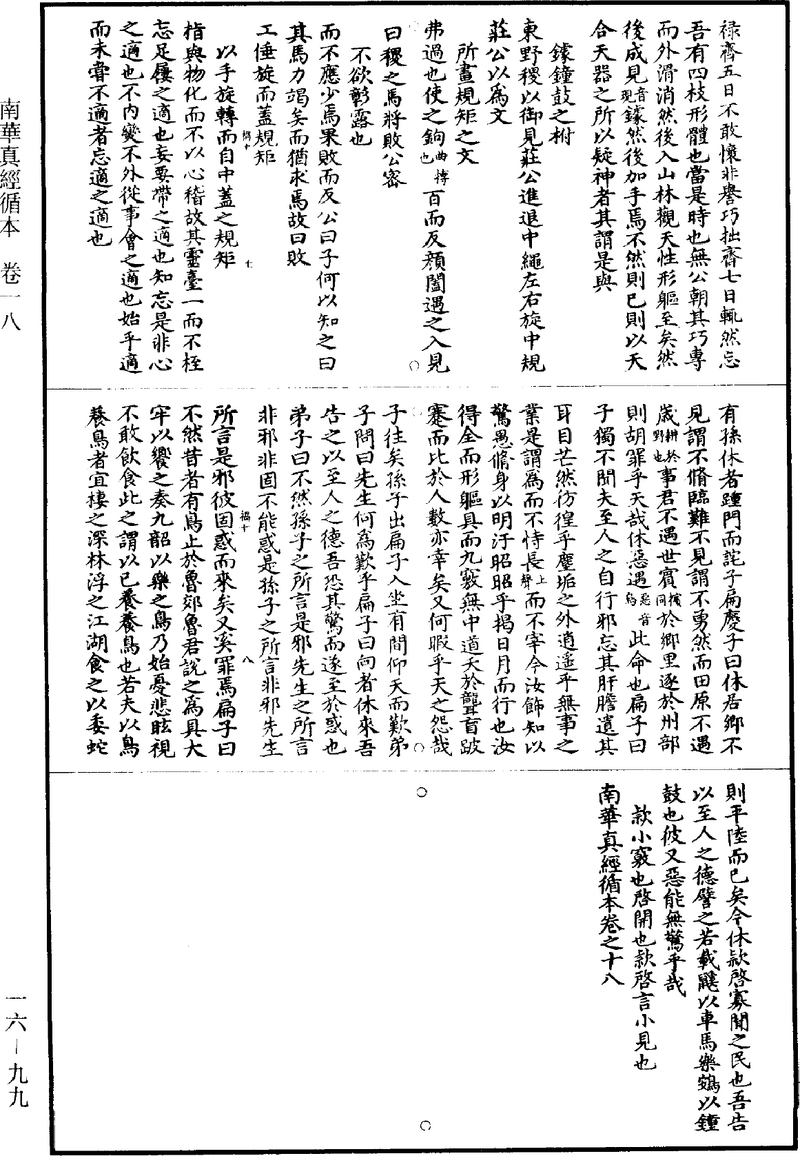 祿齊五日不敢懷非譽巧拙齊七日輒然忘
吾有四枝形體也當是時也無公朝其巧專
而外滑消然後入山林觀天性形軀至矣然
後成見音現鐻然後加手焉不然則已則以天
合天器之所以疑神者其謂是與
鐻鐘鼓之柎
東野稷以御見莊公進退中繩左右旋中規
莊公以為文
所畫規矩之文
弗過也使之鉤曲搏也百而反顏闔遇之入見
曰稷之馬將敗公密
不欲彰露也
而不應少焉果敗而反公曰子何以知之曰
其馬力竭矣而猶求焉故曰敗
工倕旋而蓋規矩
以手旋轉而自中蓋之規矩
指與物化而不以心稽故其靈臺一而不桎
忘足屨之適也忘要帶之適也知忘是非心
之適也不內變不外從事會之適也始乎適
而未嘗不適者忘適之適也
有孫休者踵門而詫子扁慶子曰休居鄉不
見謂不脩臨難不見謂不勇然而田原不遇
歲耕於野也事君不遇世賓擯同於鄉里逐於州部
則胡罪乎天哉休惡遇惡音烏此命也扁子曰
子獨不聞夫至人之自行邪忘其肝膽遺其
耳目芒然彷徨乎塵垢之外逍遥乎無事之
業是謂為而不恃長上聲而不宰今汝飾知以
驚愚脩身以明汙昭昭乎揭日月而行也汝
得全而形軀具而九竅無中道夭於聾盲跛
蹇而比於人數亦幸矣又何暇乎天之怨哉
子往矣孫子出扁子入坐有間仰天而歎弟
子問曰先生何為歎乎扁子曰向者休來吾
告之以至人之德吾恐其驚而遂至於惑也
弟子曰不然孫子之所言是邪先生之所言
非邪非固不能惑是孫子之所言非邪先生
所言是邪彼固惑而來矣又奚罪焉扁子曰
不然昔者有鳥止於魯郊魯君說之為具大
牢以饗之奏九韶以樂之鳥乃始憂悲眩視
不敢飲食此之謂以已養養鳥也若夫以鳥
養鳥者宜棲之深林浮之江湖食之以委蛇
則平陸而已矣今休款啓寡聞之民也吾告
以至人之德譬之若載鼷以車馬樂鴳以鐘
鼓也彼又惡能無驚乎哉
款小竅也啓開也款啓言小見也
南華真經循本卷之十八
南華真經循本 卷一八
一六－九九